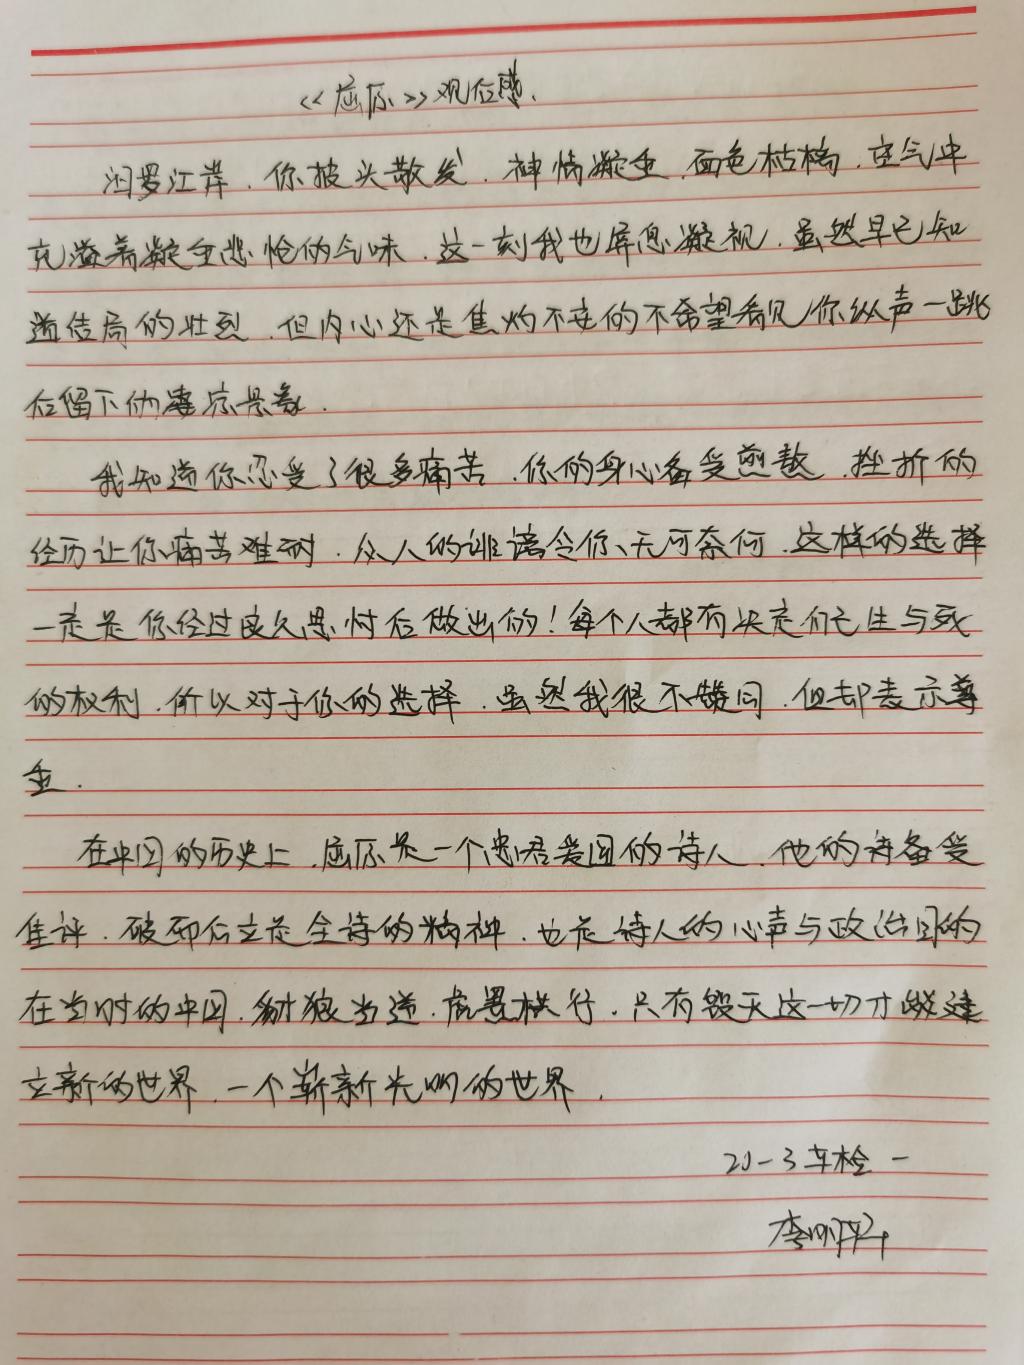 《屈原》观后感.
汨罗江岸.你披头散发.神情凝重.面色枯槁.空气中
充溢着凝重悲怆的气味.这一刻我也屏息凝视.虽然早已知
道结局的壮烈.但内心还是焦灼不安的不希望看见你纵声一跳
后留下的凄凉景象.
我知道你忍受了很多痛苦.你的身心备受煎熬.挫折的
经历让你痛苦难耐.众人的诽谤令你无可奈何.这样的选择
一定是你经过良久思忖后做出的!每个人都有决定自己生与死
的权利.所以对于你的选择.虽然我很不赞同.但却表示尊
重.
在中国的历史上.屈原是一个忠君爱国的诗人.他的诗备受
佳评.破而后立是全诗的精神.也是诗人的心声与政治目的
在当时的中国.豺狼当道.虎豹横行.只有毁灭这一切才能建
立新的世界.一个崭新光明的世界.
20-3车检一
李明